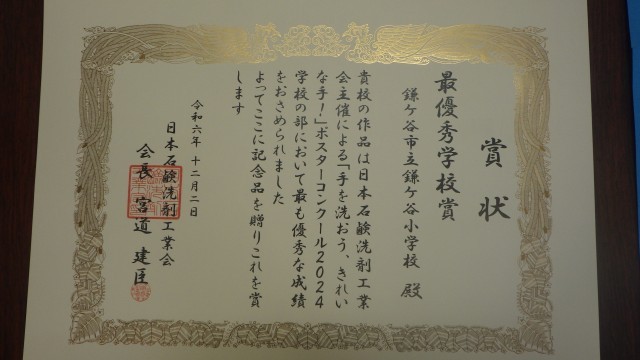 賞状
最優秀学校賞
鎌ケ谷市立鎌ケ谷小学校 殿
貴校の作品は日本石鹸洗剤工業
会主催による「手を洗おう、きれい
な手!」ポスターコンクール2024
学校の部において最も優秀な成績
をおさめられました
よってここに記念品を贈りこれを賞
します
令和六年 十二月二日
日本石鹸洗剤工業会
会長 宮道 建臣